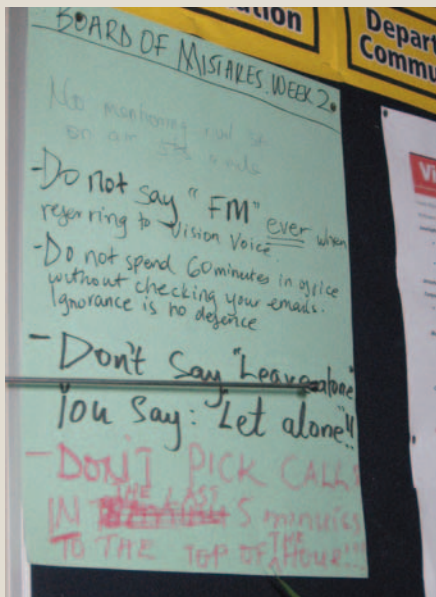 ation
Depart
Commu
BOARD OF MISTAKES. WEEK 2.
No mentioning
on air
-Do not say "FM" ever when
referring to Vision Voice.
-Do not spend 60 minutes in office
without checking your emails.
Ignorance is no defence
- Don't say "Leave alone"
You say: "Let alone"!!
- DON'T PICK CALLS
IN THE LAST 5 minutes
TO THE TOP OF THE HOUR!!!
Vi